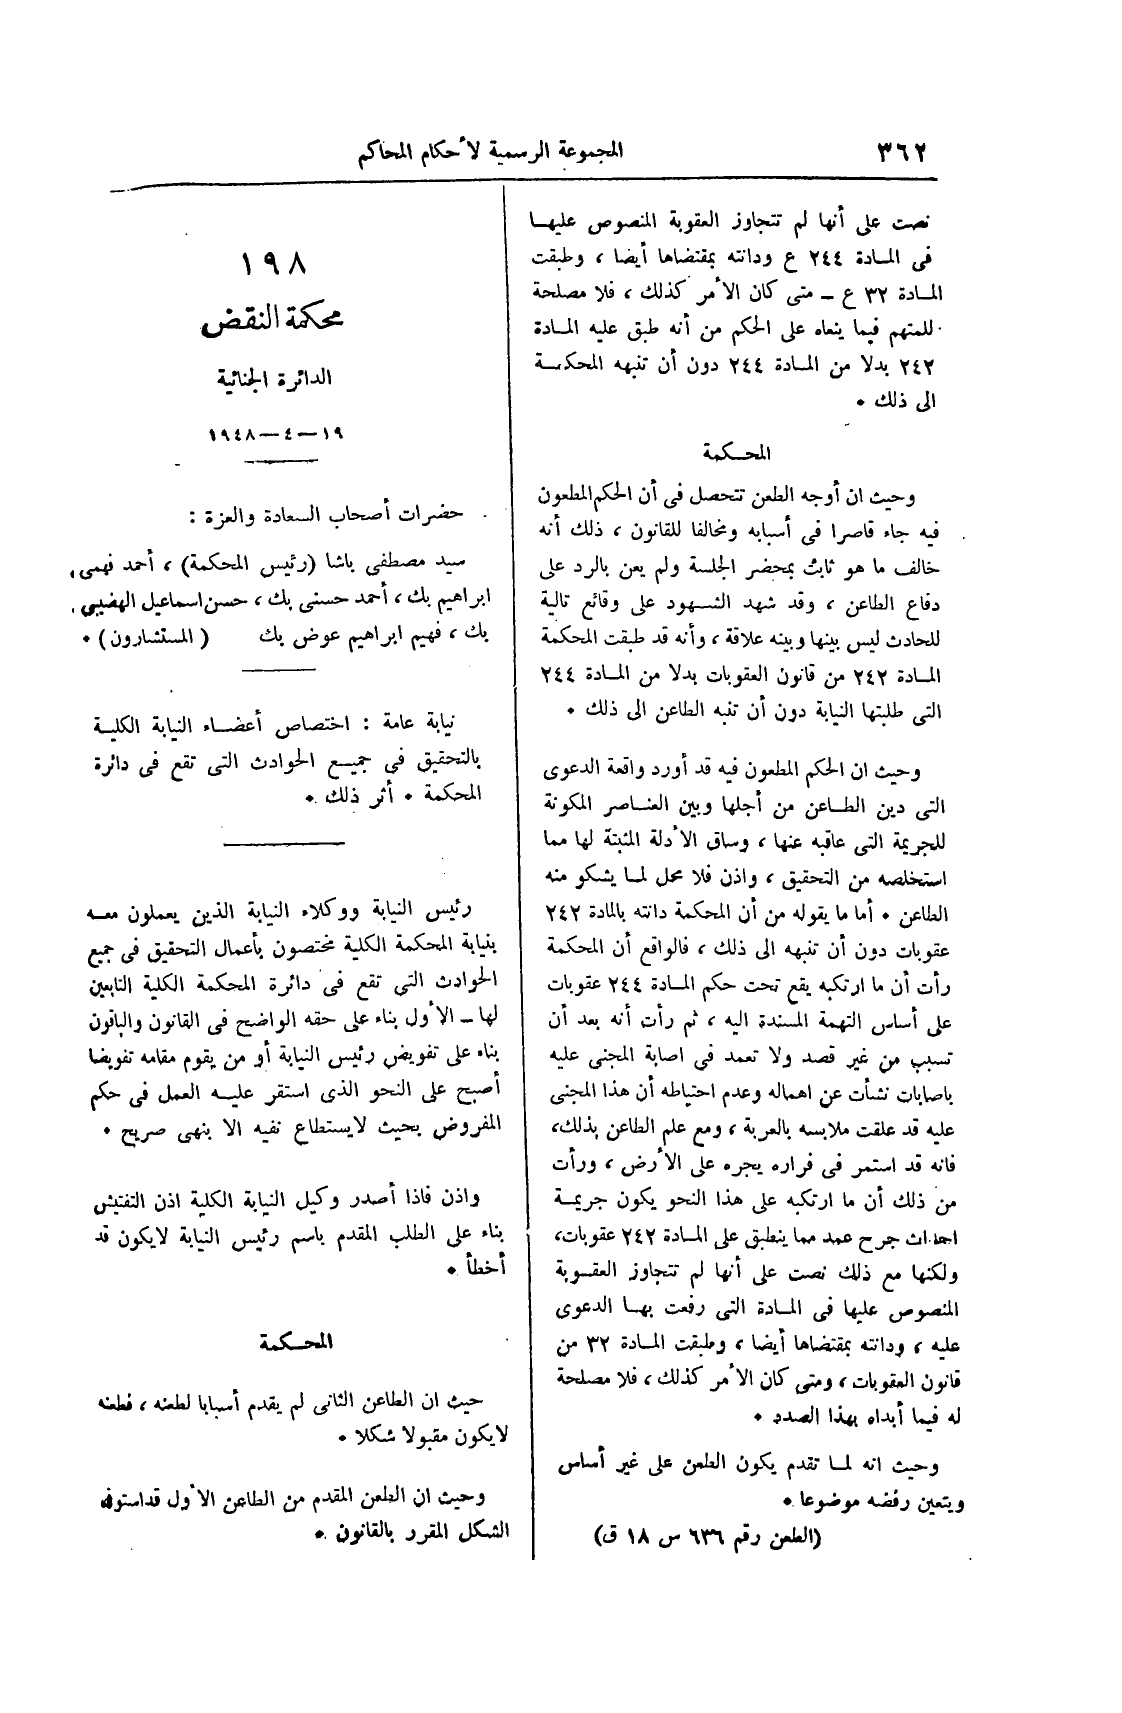 ٣٦٢
المجموعة الرسمية لأحكام المحاكم
نصت على أنها لم تتجاوز العقوبة المنصوص عليها
فى المادة ٢٤٤ ع ودانته بمقتضاها أيضا ، وطبقت
المادة ٣٢ ع ــ متى كان الأمر كذلك ، فلا مصلحة
للمتهم فيما ينعاه على الحكم من أنه طبق عليه المادة
٢٤٢ بدلا من المادة ٢٤٤ دون أن تنبهه المحكمة
الى ذلك •
المحكمة
وحيث ان أوجه الطعن تتحصل فى أن الحكم المطعون
فيه جاء قاصرا فى أسبابه ومخالفا للقانون ، ذلك أنه
خالف ما هو ثابت بمحضر الجلسة ولم يعن بالرد على
دفاع الطاعن ، وقد شهد الشهود على وقائع تالية
للحادث ليس بينها وبينه علاقة ، وأنه قد طبقت المحكمة
المادة ٢٤٢ من قانون العقوبات بدلا من المادة ٢٤٤
التى طلبتها النيابة دون أن تنبه الطاعن الى ذلك •
وحيث ان الحكم المطعون فيه قد أورد واقعة الدعوى
التى دين الطاعن من أجلها وبين العناصر المكونة
للجريمة التى عاقبه عنها ، وساق الأدلة المثبتة لها مما
استخلصه من التحقيق ، واذن فلا محل لما يشكو منه
الطاعن • أما ما يقوله من أن المحكمة دانته بالمادة ٢٤٢
عقوبات دون أن تنبهه الى ذلك ، فالواقع أن المحكمة
رأت أن ما ارتكبه يقع تحت حكم المادة ٢٤٤ عقوبات
على أساس التهمة المسندة اليه ، ثم رأت أنه بعد أن
تسبب من غير قصد ولا تعمد فى اصابة المجنى عليه
باصابات نشأت عن اهماله وعدم احتياطه أن هذا المجنى
عليه قد علقت ملابسه بالعربة ، ومع علم الطاعن بذلك،
فانه قد استمر فى فراره يجره على الأرض ، ورأت
من ذلك أن ما ارتكبه على هذا النحو يكون جريمة
احداث جرح عمد مما ينطبق على المادة ٢٤٢ عقوبات،
ولكنها مع ذلك نصت على أنها لم تتجاوز العقوبة
المنصوص عليها فى المادة التى رفعت بها الدعوى
عليه ، ودانته بمقتضاها أيضا ، وطبقت المادة ٣٢ من
قانون العقوبات ، ومتى كان الأمر كذلك ، فلا مصلحة
له فيما أبداه بهذا الصدد •
وحيث انه لما تقدم يكون الطعن على غير أساس
ويتعين رفضه موضوعا •
(الطعن رقم ٦٣٦ س ١٨ ق)
١٩٨
محكمة النقض
الدائرة الجنائية
١٩ــ٤ــ١٩٤٨
حضرات أصحاب السعادة والعزة :
سيد مصطفى باشا (رئيس المحكمة) ، أحمد فهمى
ابراهيم بك ، أحمد حسنى بك ، حسن اسماعيل الهضيبى
بك ، فهيم ابراهيم عوض بك (المستشارون) •
نيابة عامة : اختصاص أعضاء النيابة الكلية
بالتحقيق فى جميع الحوادث التى تقع فى دائرة
المحكمة • أثر ذلك •
رئيس النيابة ووكلاء النيابة الذين يعملون معه
بنيابة المحكمة الكلية مختصون بأعمال التحقيق فى جميع
الحوادث التى تقع فى دائرة المحكمة الكلية التابعين
لها ــ الأول بناء على حقه الواضح فى القانون والباقون
بناء على تفويض رئيس النيابة أو من يقوم مقامه تفويضا
أصبح على النحو الذى استقر عليه العمل فى حكم
المفروض بحيث لايستطاع نفيه الا بنهى صريح •
واذن فاذا أصدر وكيل النيابة الكلية اذن التفتيش
بناء على الطلب المقدم باسم رئيس النيابة لايكون قد
أخطأ •
المحكمة
حيث ان الطاعن الثانى لم يقدم أسبابا لطعنه ، فطعنه
لايكون مقبولا شكلا •
وحيث ان الطعن المقدم من الطاعن الأول قداستوفى
الشكل المقرر بالقانون •